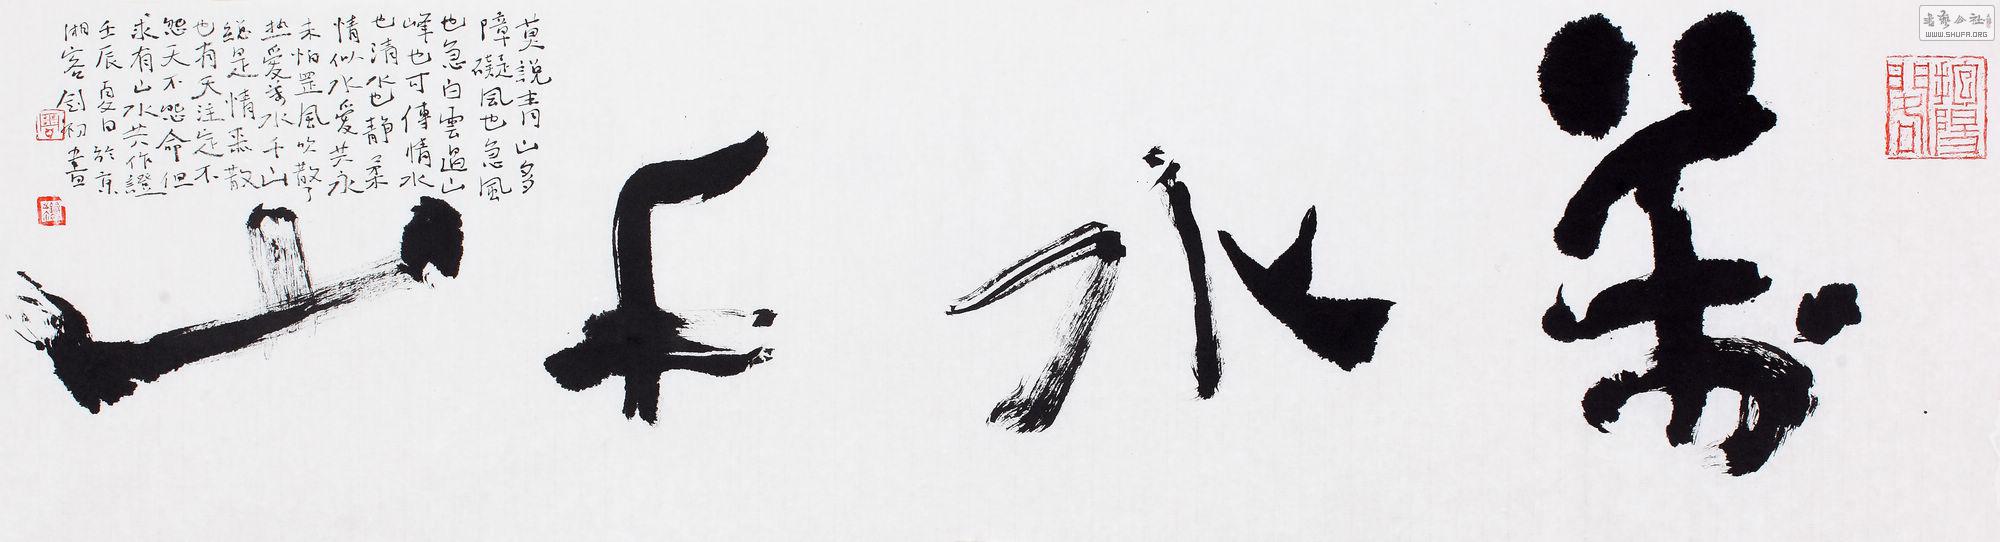 萬水千山
莫說青山多
障礙風也急風
也急白雲過山
峰也可傳情水
也清水也靜柔
情似水愛共永
未怕罡風吹散了
热愛萬水千山
總是情聚散
也有天注定不
怨天不怨命但
求有山水共作證
壬辰夏日於京
湘客劍初書
书艺公社
WWW.SHUFA.ORG